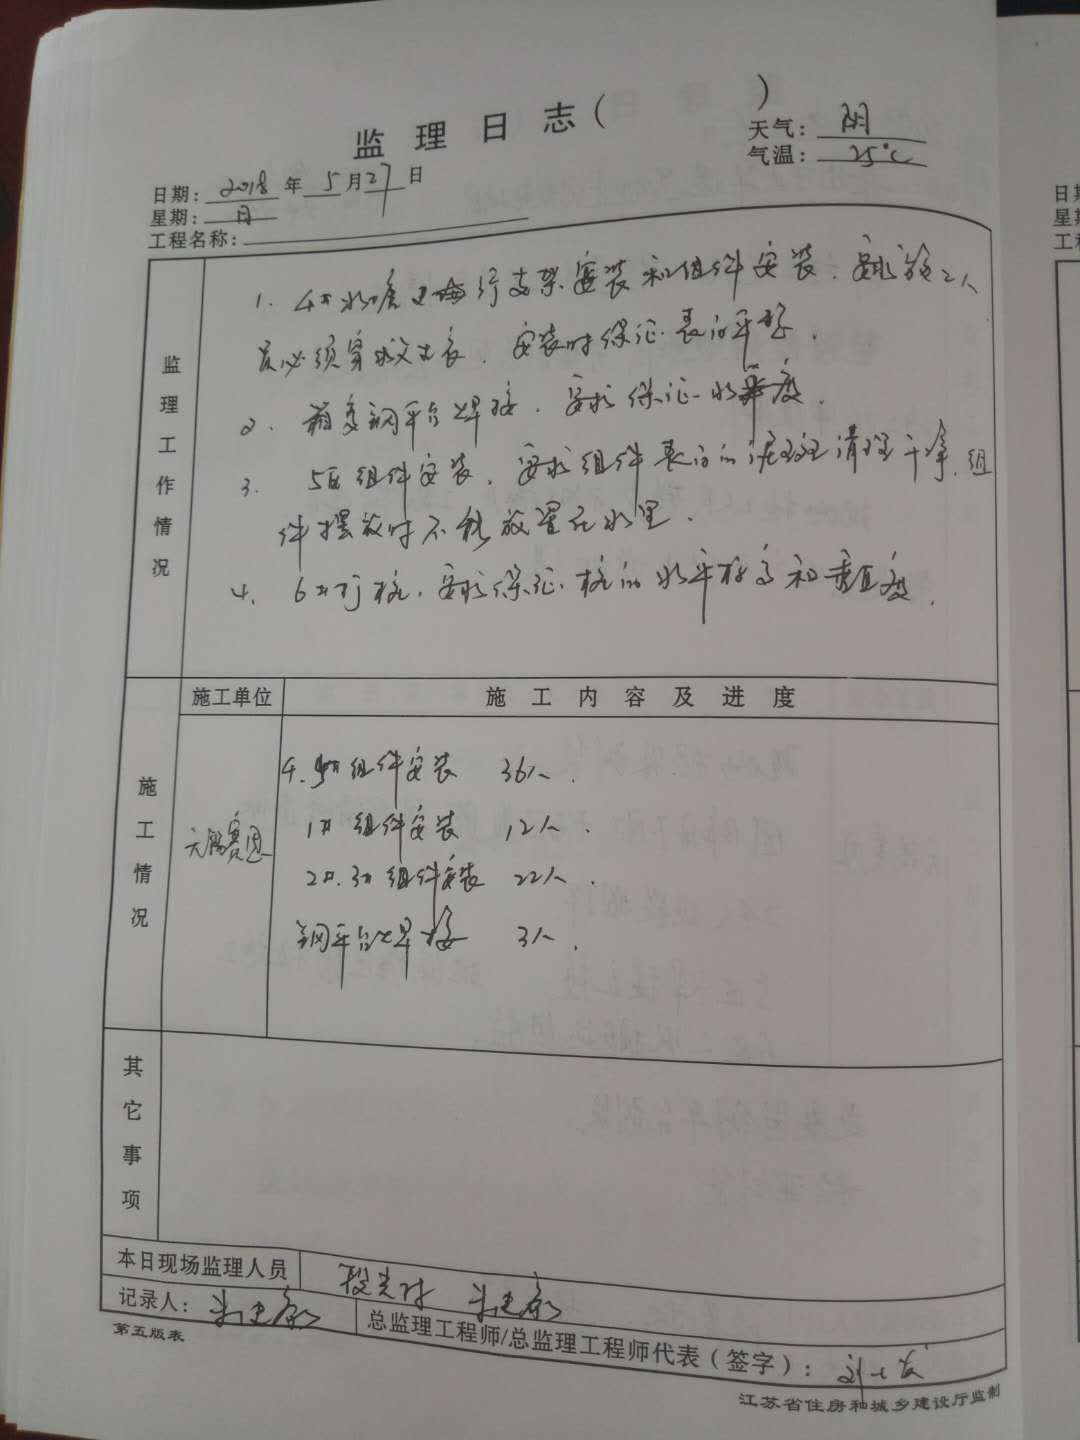 监理日志( )
天气: 阴
气温: 25℃
日期: 2018 年 5 月 27 日
星期: 日
工程名称:
监理工作情况
1. 4# 进行支架安装和组件安装. 要求 2人
员必须穿救生衣. 安装时保证表面平整.
2. 钢平台焊接. 要求保证水平度.
3. 5#组件安装. 要求组件表面的泥斑清理干净. 组
件摆放时不能放置在水里.
4. 6#打桩. 要求保证桩的水平标高和垂直度.
施工单位 施工内容及进度
施工情况
无锡赛恩
4. 5#组件安装 36人.
1# 组件安装 12人.
2#. 3# 组件安装 22人.
钢平台焊接 3人.
其它事项
本日现场监理人员
记录人:
总监理工程师/总监理工程师代表(签字):
第五版表
江苏省住房和城乡建设厅监制